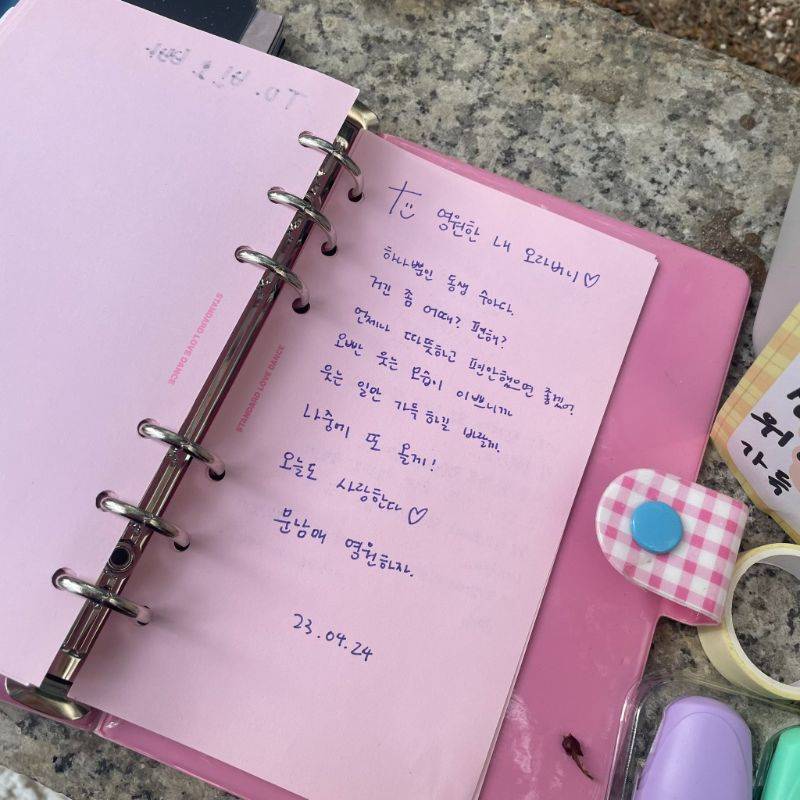 To.
STANDARD LOVE DANCE
STANDARD LOVE DANCE
To 영원한 내 오라버니♡
하나뿐인 동생 수아다.
거긴 좀 어때? 편해?
언제나 따뜻하고 편안했으면 좋겠어.
오빤 웃는 모습이 이쁘니까
웃는 일만 가득하길 바랄게.
나중에 또 올게!
오늘도 사랑한다♡
문남매 영원하자.
23.04.24
가득